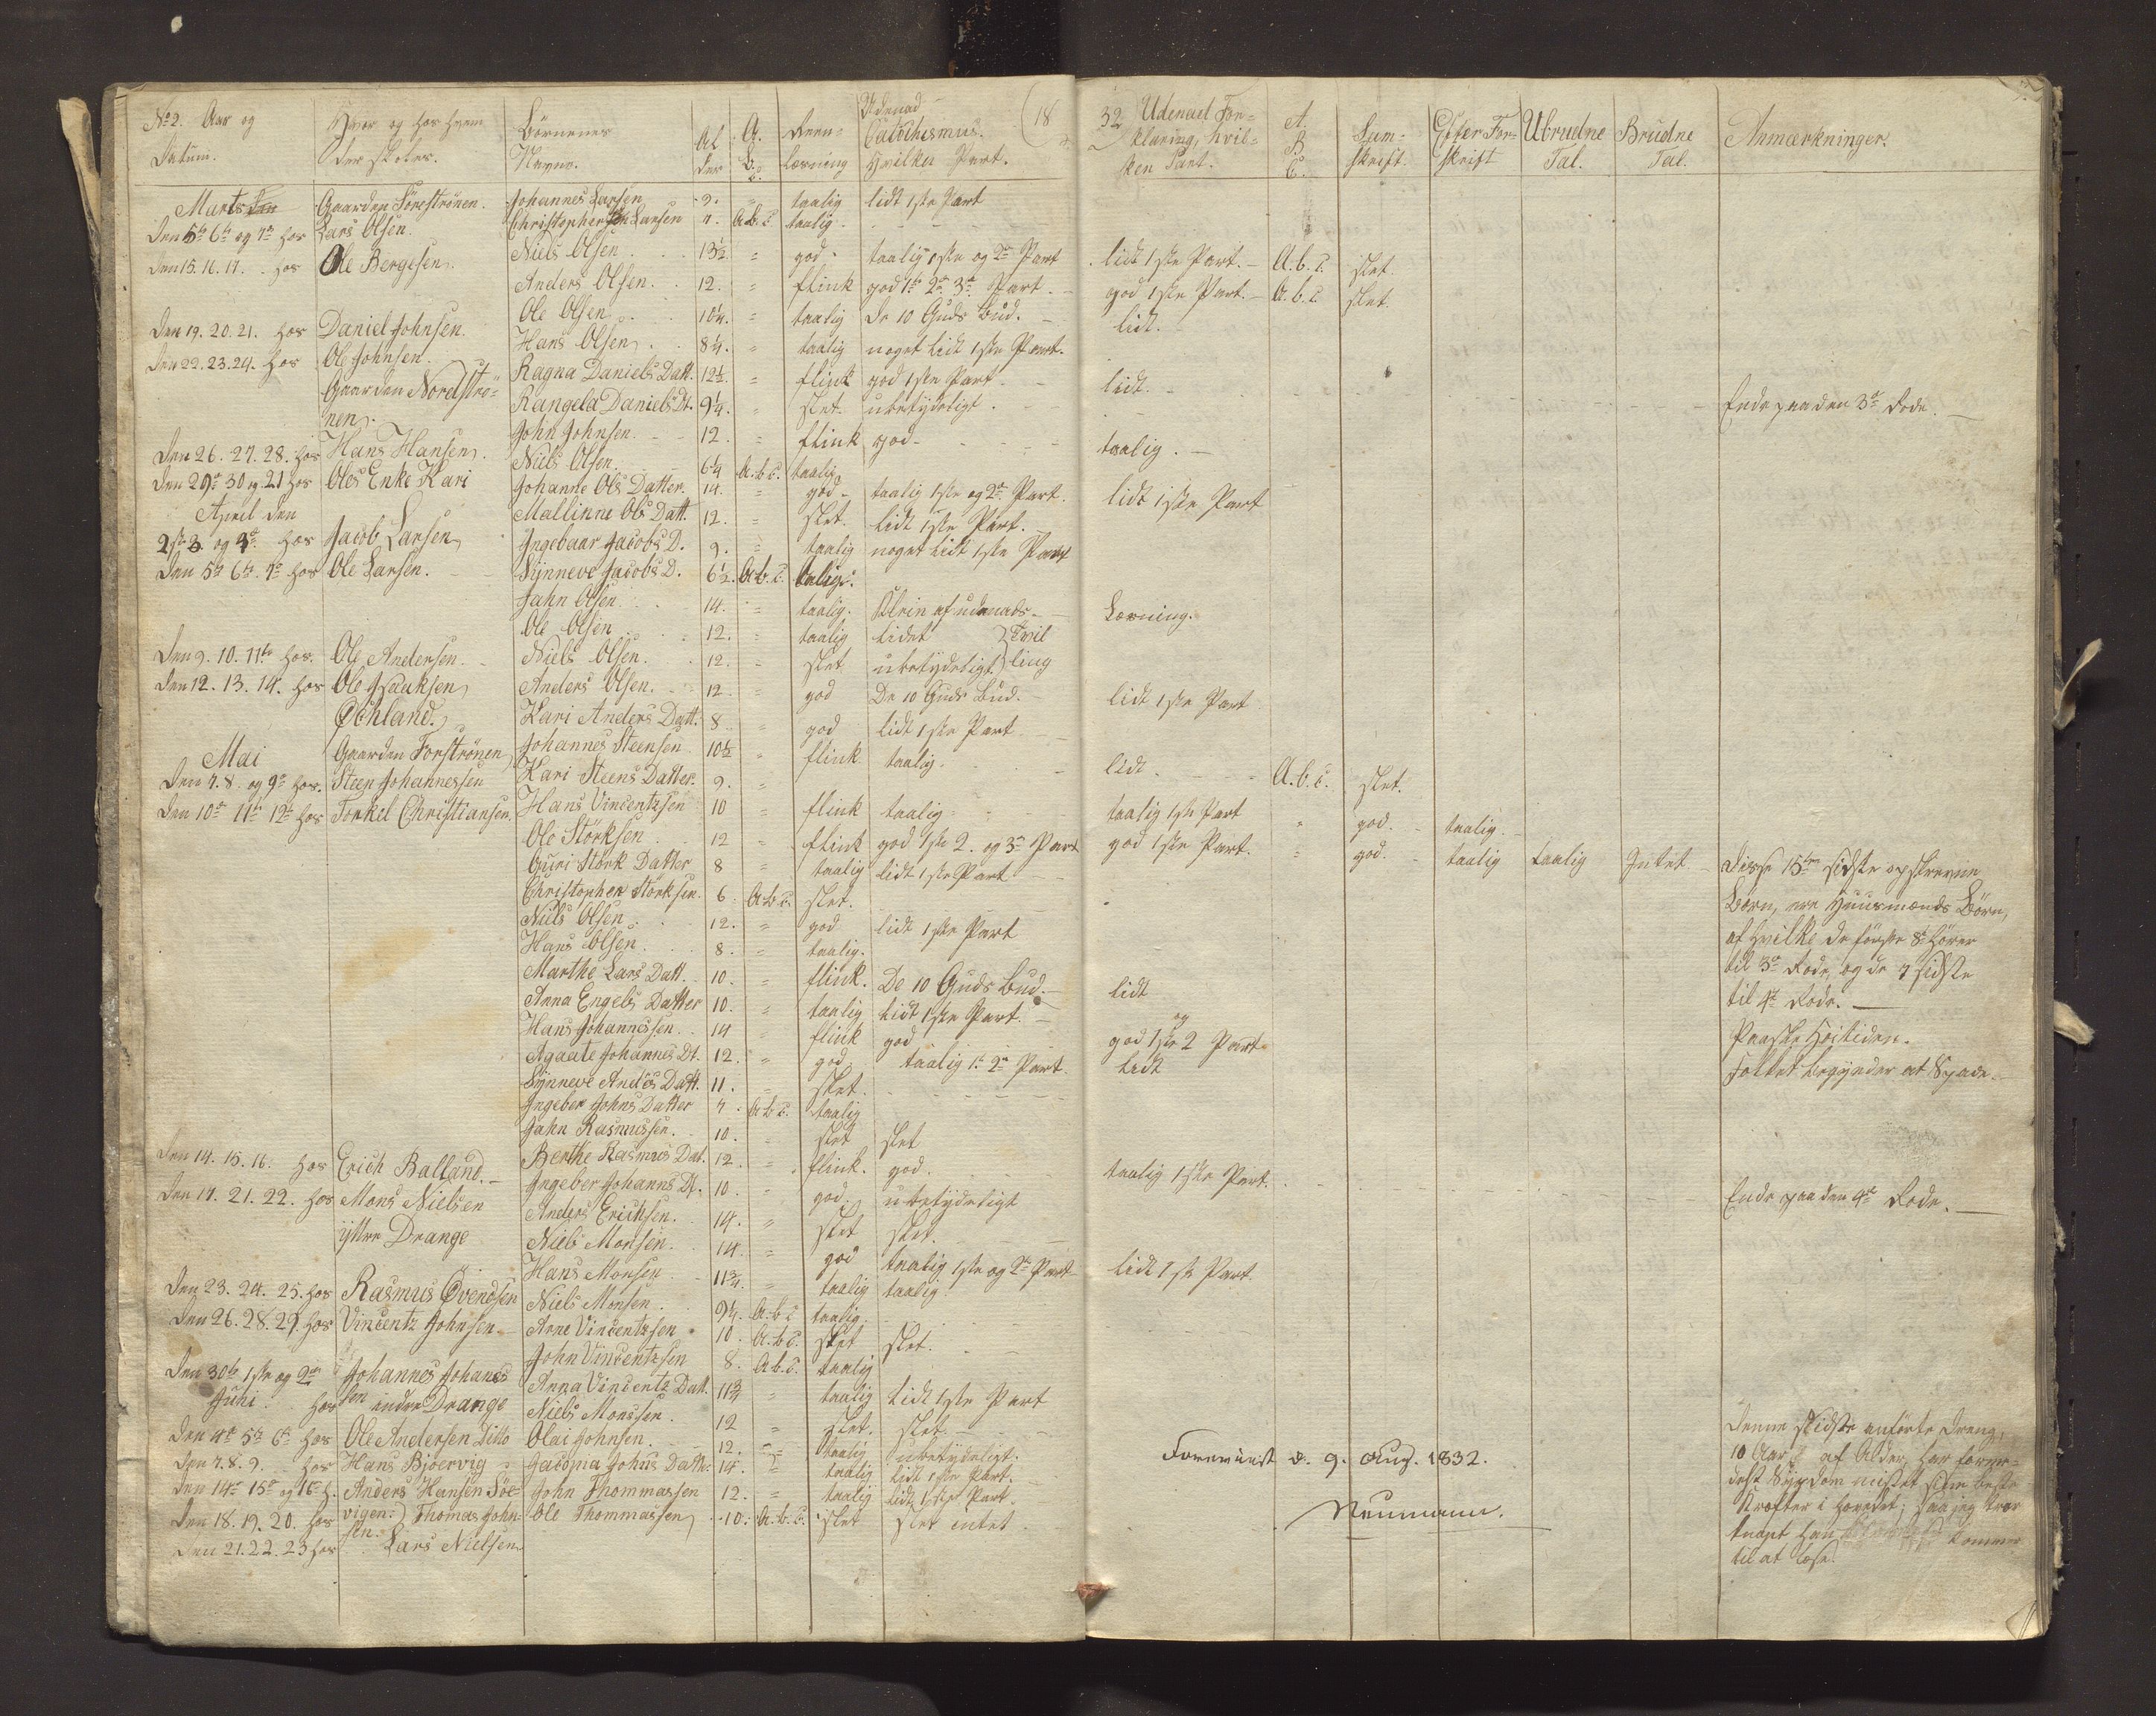 No 2. Aar og Datum.
Hvor og hos hvem der skoles.
Börnenes Navne.
Al der
A. B. C.
Reen- læsning
Udenad Catechismus. Hvilken Part.
(18
32 Udenad For- klaring, hvil- ken Part.
A B C.
Sam- skrift.
Efter For- skrift
Ubrudne Tal.
Brudne Tal.
Anmærkninger.
Marts den Gaarden Söreströnen. Johannes Larsen 9. taalig lidt 1ste Part
Den 5te 6te og 7de hos Lars Olsen. Christopher Larsen 7. A.b.c. taalig
Den 15. 16. 17. hos Ole Bergesen. Niels Olsen 13½ god taalig 1ste og 2den Part lidt 1ste Part. A.b.c. slet.
Anders Olsen. 12. flink god 1ste 2den 3die Part god 1ste Part. A.b.c. slet.
Den 19. 20. 21. hos Daniel Johnsen. Ole Olsen. 10¼. taalig De 10 Guds Bud. lidt.
Den 22. 23. 24. hos Ole Johnsen. Hans Olsen. 8¼. taalig noget lidt 1ste Part.
Gaarden Nordströ- Ragna Daniels Datt. 12½. flink god 1ste Part lidt.
nen. Rangela Daniels Dt. 9¼. slet ubetydeligt. Ende paa den 3die Rode.
Den 26. 27. 28. hos Hans Hansen. John Johnsen. 12. flink god taalig.
Den 29de 30 og 21 hos Oles Enke Kari Niels Olsen. 6¼ A.b.c. taalig
Johanne Ols Datter. 14. god taalig 1ste og 2den Part. lidt 1ste Part
April den Mallinne Ols Datt. 12. slet. lidt 1ste Part.
2den 3 og 4de hos Jacob Larsen Ingebaar Jacobs D. 9. taalig noget lidt 1ste Part
Den 5te 6te 7de hos Ole Larsen. Synneve Jacobs D. 6½. A.b.c. taalig.
Jahn Olsen 14. taalig. Klein af udenads- Læsning.
Ole Olsen 12. taalig lidet } Tvil
Den 9. 10. 11te hos. Ole Andersen. Niels Olsen. 12. slet ubetydeligt } ling
Den 12. 13. 14. hos Ole Isaaksen Anders Olsen. 12. god De 10 Guds Bud. lidt 1ste Part
Öchland. Kari Anders Datt. 8 god lidt 1ste Part
Mai Gaarden Forströnen Johannes Steensen 10½ flink taalig. lidt. A.b.c. slet.
Den 7. 8. og 9de hos. Steen Johannessen Kari Steens Datter. 9.
Den 10de 11te 12te hos Torkel Christiansen. Hans Vincentzsen 10 flink taalig taalig 1ste Part god. taalig.
Ole Störksen 12 flink god 1ste 2. og 3die Part god 1ste Part. god. taalig taalig Intet
Guri Störk Datter 8 taalig lidt 1ste Part
Christopher Störksen. 6. A.b.c. slet.
Niels Olsen 12. god lidt 1ste Part
Hans Olsen 8. taalig.
Marthe Lars Datt. 10. flink. De 10 Guds Bud. lidt
Anna Engels Datter 10. taalig lidt 1ste Part.
Hans Johannessen. 14 flink god god 1ste og 2 Part
Agaate Johannes Dt. 12. god taalig 1. 2den Part. lidt
Synneve Anders Datt. 11. slet.
Ingeber Johns Datter 7. A.b.c. taalig
Jahn Rasmussen. 10. slet slet
Disse 15ten sidste opskrevne
Börn, ere Huusmænds Börn,
af hvilke de förste 8 hörer
til 3die Rode, og de 7 sidste
til 4de Rode.
Paaske Höitiden.
Folket begynder at Spade.
Den 14. 15. 16. hos Erich Balland. Berthe Rasmus Dat. 12. flink. god. taalig 1ste Part.
Den 17. 21. 22. hos Mons Nielsen Ingeber Johanns Dt. 10. god. ubetydeligt Ende paa den 4de Rode.
yttre Drange Anders Erichsen. 14. slet slet.
Niels Monsen. 14. god taalig 1ste og 2den Part lidt 1ste Part
Den 23. 24. 25. hos Rasmus Övendsen Hans Monsen 11¾. taalig taalig
Den 26. 28. 29. hos Vincentz Johnsen. Niels Monsen. 9¼. A.b.c taalig.
Arne Vincentzsen 10. A.b.c. slet slet.
Den 30te 1ste og 2den Johannes Johanes John Vincentzsen 8. A.b.c. taalig
Juni. hos sen indre Drange Anna Vincentz Datt. 11¾ taalig lidt 1ste Part
Niels Monssen. 12 slet. slet.
Den 4de 5te 6te hos Ole Andersen Ditto Olai Johnsen. 12. taalig ubetydeligt.
Den 7. 8. 9. hos Hans Bjoervig Jacopia Johns Datt. 14. taalig lidt 1ste Part.
Den 14de 15de og 16de h. Anders Hansen Söe- John Thommassen 12. taalig lidt 1ste Part.
Den 18. 19. 20. hos vigen.) Thomas John- Ole Thommassen 10. A.b.c. slet slet intet
Den 21. 22. 23 hos sen. Lars Nielsen
Foreviist d. 9. Aug. 1832.
Neumann.
Denne sidste anförte Dreng,
10 Aar af Alder, har formed-
elst Sygdom mistet sine beste
Kræfter i Hovedet; saa jeg troer
knapt han kommer
til at læse.